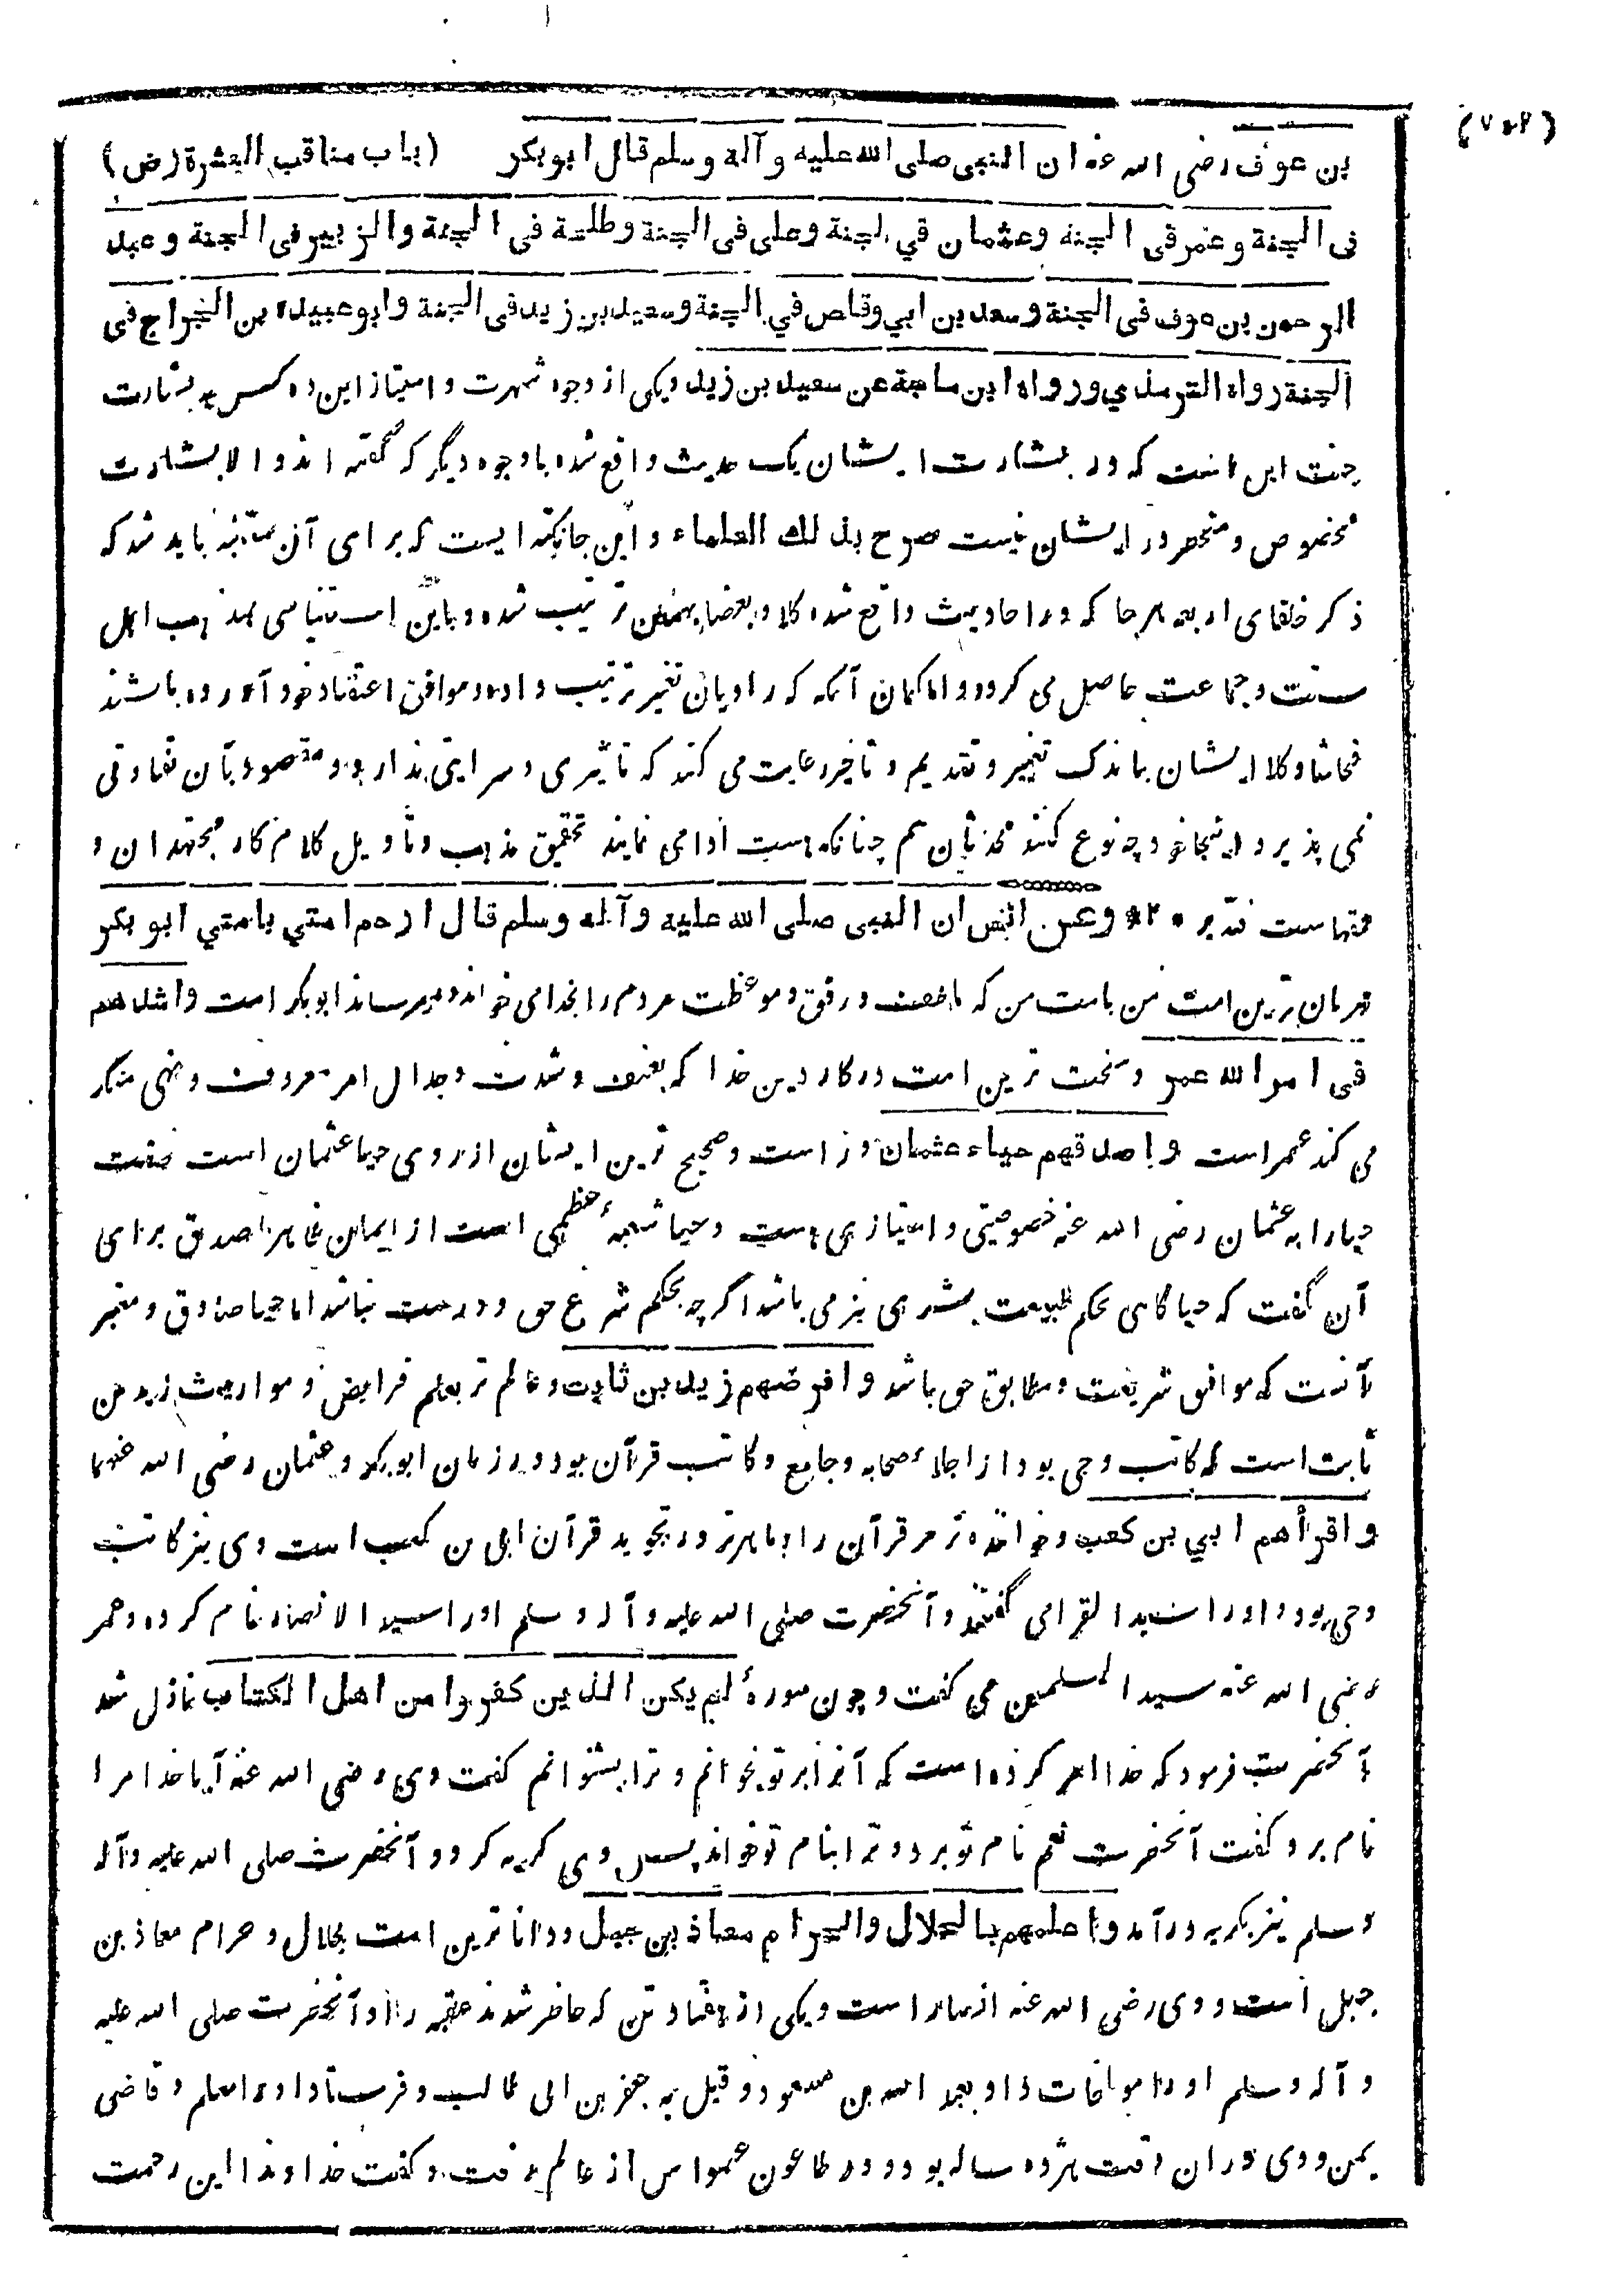 (۷۰۴)
بن عوف رضی الله عنه ان النبی صلی الله علیه و آله و سلم قال ابو بکر (باب مناقب العشرة (رض)
فی الجنة و عمر فی الجنة و عثمان في الجنة و علی فی الجنة و طلحة فی الجنة و الزبیر فی الجنة و عبد
الرحمن بن عوف فی الجنة و سعد بن ابي وقاص في الجنة و سعید بن زید فی الجنة و ابو عبیده بن الجراح فی
الجنة رواه الترمذي و رواه ابن ماجة عن سعید بن زید و یکی از وجوه شهرت و امتیاز این ده کس به بشارت
جنت این است که در بشارت ایشان یک حدیث واقع شده با وجوه دیگر که گفته اند و الا بشارت
مخصوص و منحصر در ایشان نیست صرح بذلك العلماء و این جا نکته ایست که برای آن متنبه باید شد که
ذکر خلفای اربعه هر جا که در احادیث واقع شده کلا و بعضا بهمین ترتیب شده و باین استیناسی بمذهب اهل
سنت و جماعت حاصل می گردد و اما گمان آنکه که راویان تغییر ترتیب داده و موافق اعتقاد خود آورده باشند
فحاشا و کلا ایشان باندک تغییر و تقدیم و تاخیر رعایت می کنند که تاثیری و سرایتی ندارد و مقصود بآن تفاوتی
نمی پذیرد اینجا خود چه نوع کنند محدثان هم چنانکه هست ادا می نمایند تحقیق مذهب و تاویل کلام کار مجتهدان و
فقهاست فتدبر * ۲ * و عن انس ان النبی صلی الله علیه و آله و سلم قال ارحم امتي بامتي ابو بکر
مهربان ترین امت من بامت من که بلطف و رفق و موعظت مردم را بخدا می خواند و میرساند ابو بکر است و اشدهم
فی امر الله عمر و سخت ترین امت در کار دین خدا که بعنف و شدت و جدال امر معروف و نهی منکر
می کند عمر است و اصدقهم حیاء عثمان و راست و صحیح ترین ایشان از روی حیا عثمان است صفت
حیا را به عثمان رضی الله عنه خصوصیتی و امتیازی هست و حیا شعبهٔ عظمی است از ایمان ظاهرا اصدق برای
آن گفت که حیا گاهی بحکم طبیعت بشری نیز می باشد اگر چه بحکم شرع حق و درست نباشد اما حیا صادق و معتبر
آنست که موافق شریعت و مطابق حق باشد و افرضهم زید بن ثابت و عالم تر بعلم فرایض و مواریث زید بن
ثابت است که کاتب وحی بود از اجلاء صحابه و جامع و کاتب قرآن بود در زمان ابو بکر و عثمان رضی الله عنهما
و اقرأهم ابي بن کعب و خواننده تر مر قرآن را و ماهرتر در تجوید قرآن ابی بن کعب است وی نیز کاتب
وحی بود و او را سید القرا می گفتند و آنحضرت صلی الله علیه و آله و سلم او را سید الانصار نام کرده و عمر
رضی الله عنه سید المسلمین می گفت و چون سورهٔ لم یکن الذین کفروا من اهل الکتاب نازل شد
آنحضرت فرمود که خدا امر کرده است که آنرا بر تو بخوانم و ترا بشنوانم گفت وی رضی الله عنه آیا خدا مرا
نام برد گفت آنحضرت نعم نام تو برد و ترا بنام تو خواند پس وی گریه کرد و آنحضرت صلی الله علیه و آله
و سلم نیز بگریه در آمد و اعلمهم بالحلال و الحرام معاذ بن جبل و دانا ترین امت بحلال و حرام معاذ بن
جبل است و وی رضی الله عنه از انصار است و یکی از هفتاد تن که حاضر شدند عقبه را و آنحضرت صلی الله علیه
و آله و سلم او را مواخات داد بعبد الله بن مسعود و قیل به جعفر بن ابی طالب و فرستاد او را معلم و قاضی
یمن و وی دران وقت هژده ساله بود و در طاعون عمواس از عالم رفت و گفت خداوندا این رحمت